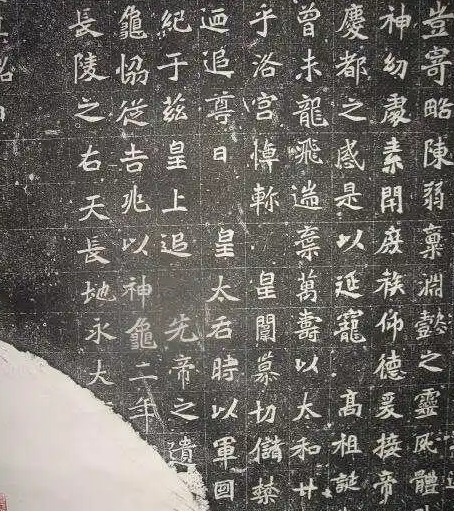 豈寄略陳弱稟淵懿之靈夙體
神幼處素閈庭秩仰德爰接帝
慶都之感是以延寵 高祖誕
曾未龍飛遄棄萬壽以太和廿
乎洛宮悼軫 皇闈慕切儲禁
迺追尊曰 皇太后時以軍國
紀于茲皇上追 先帝之遺
龜協從吉兆以神龜二年
長陵之右天長地永大
銘